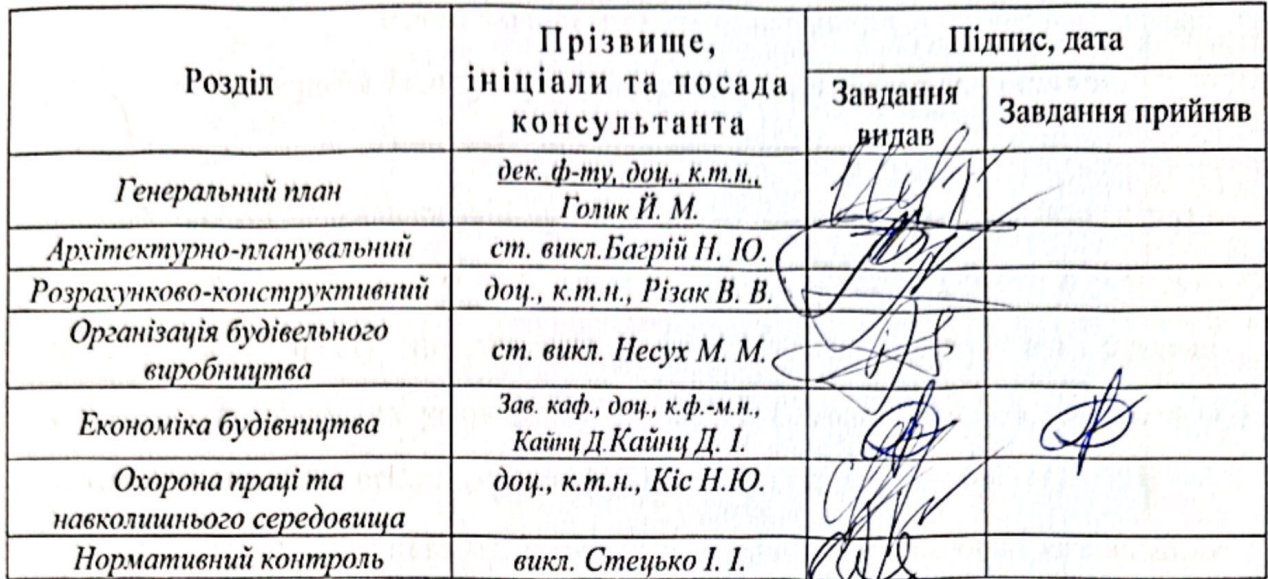 Розділ
Прізвище,
ініціали та посада
консультанта
Підпис, дата
Завдання
видав
Завдання прийняв
Генеральний план
дек. ф-ту, доц., к.т.н.,
Голик Й. М.
Архітектурно-планувальний
ст. викл.Багрій Н. Ю.
Розрахунково-конструктивний
доц., к.т.н., Різак В. В.
Організація будівельного
виробництва
ст. викл. Несух М. М.
Економіка будівництва
Зав. каф., доц., к.ф.-м.н.,
Кайнц Д.Кайнц Д. І.
Охорона праці та
навколишнього середовища
доц., к.т.н., Кіс Н.Ю.
Нормативний контроль
викл. Стецько І. І.